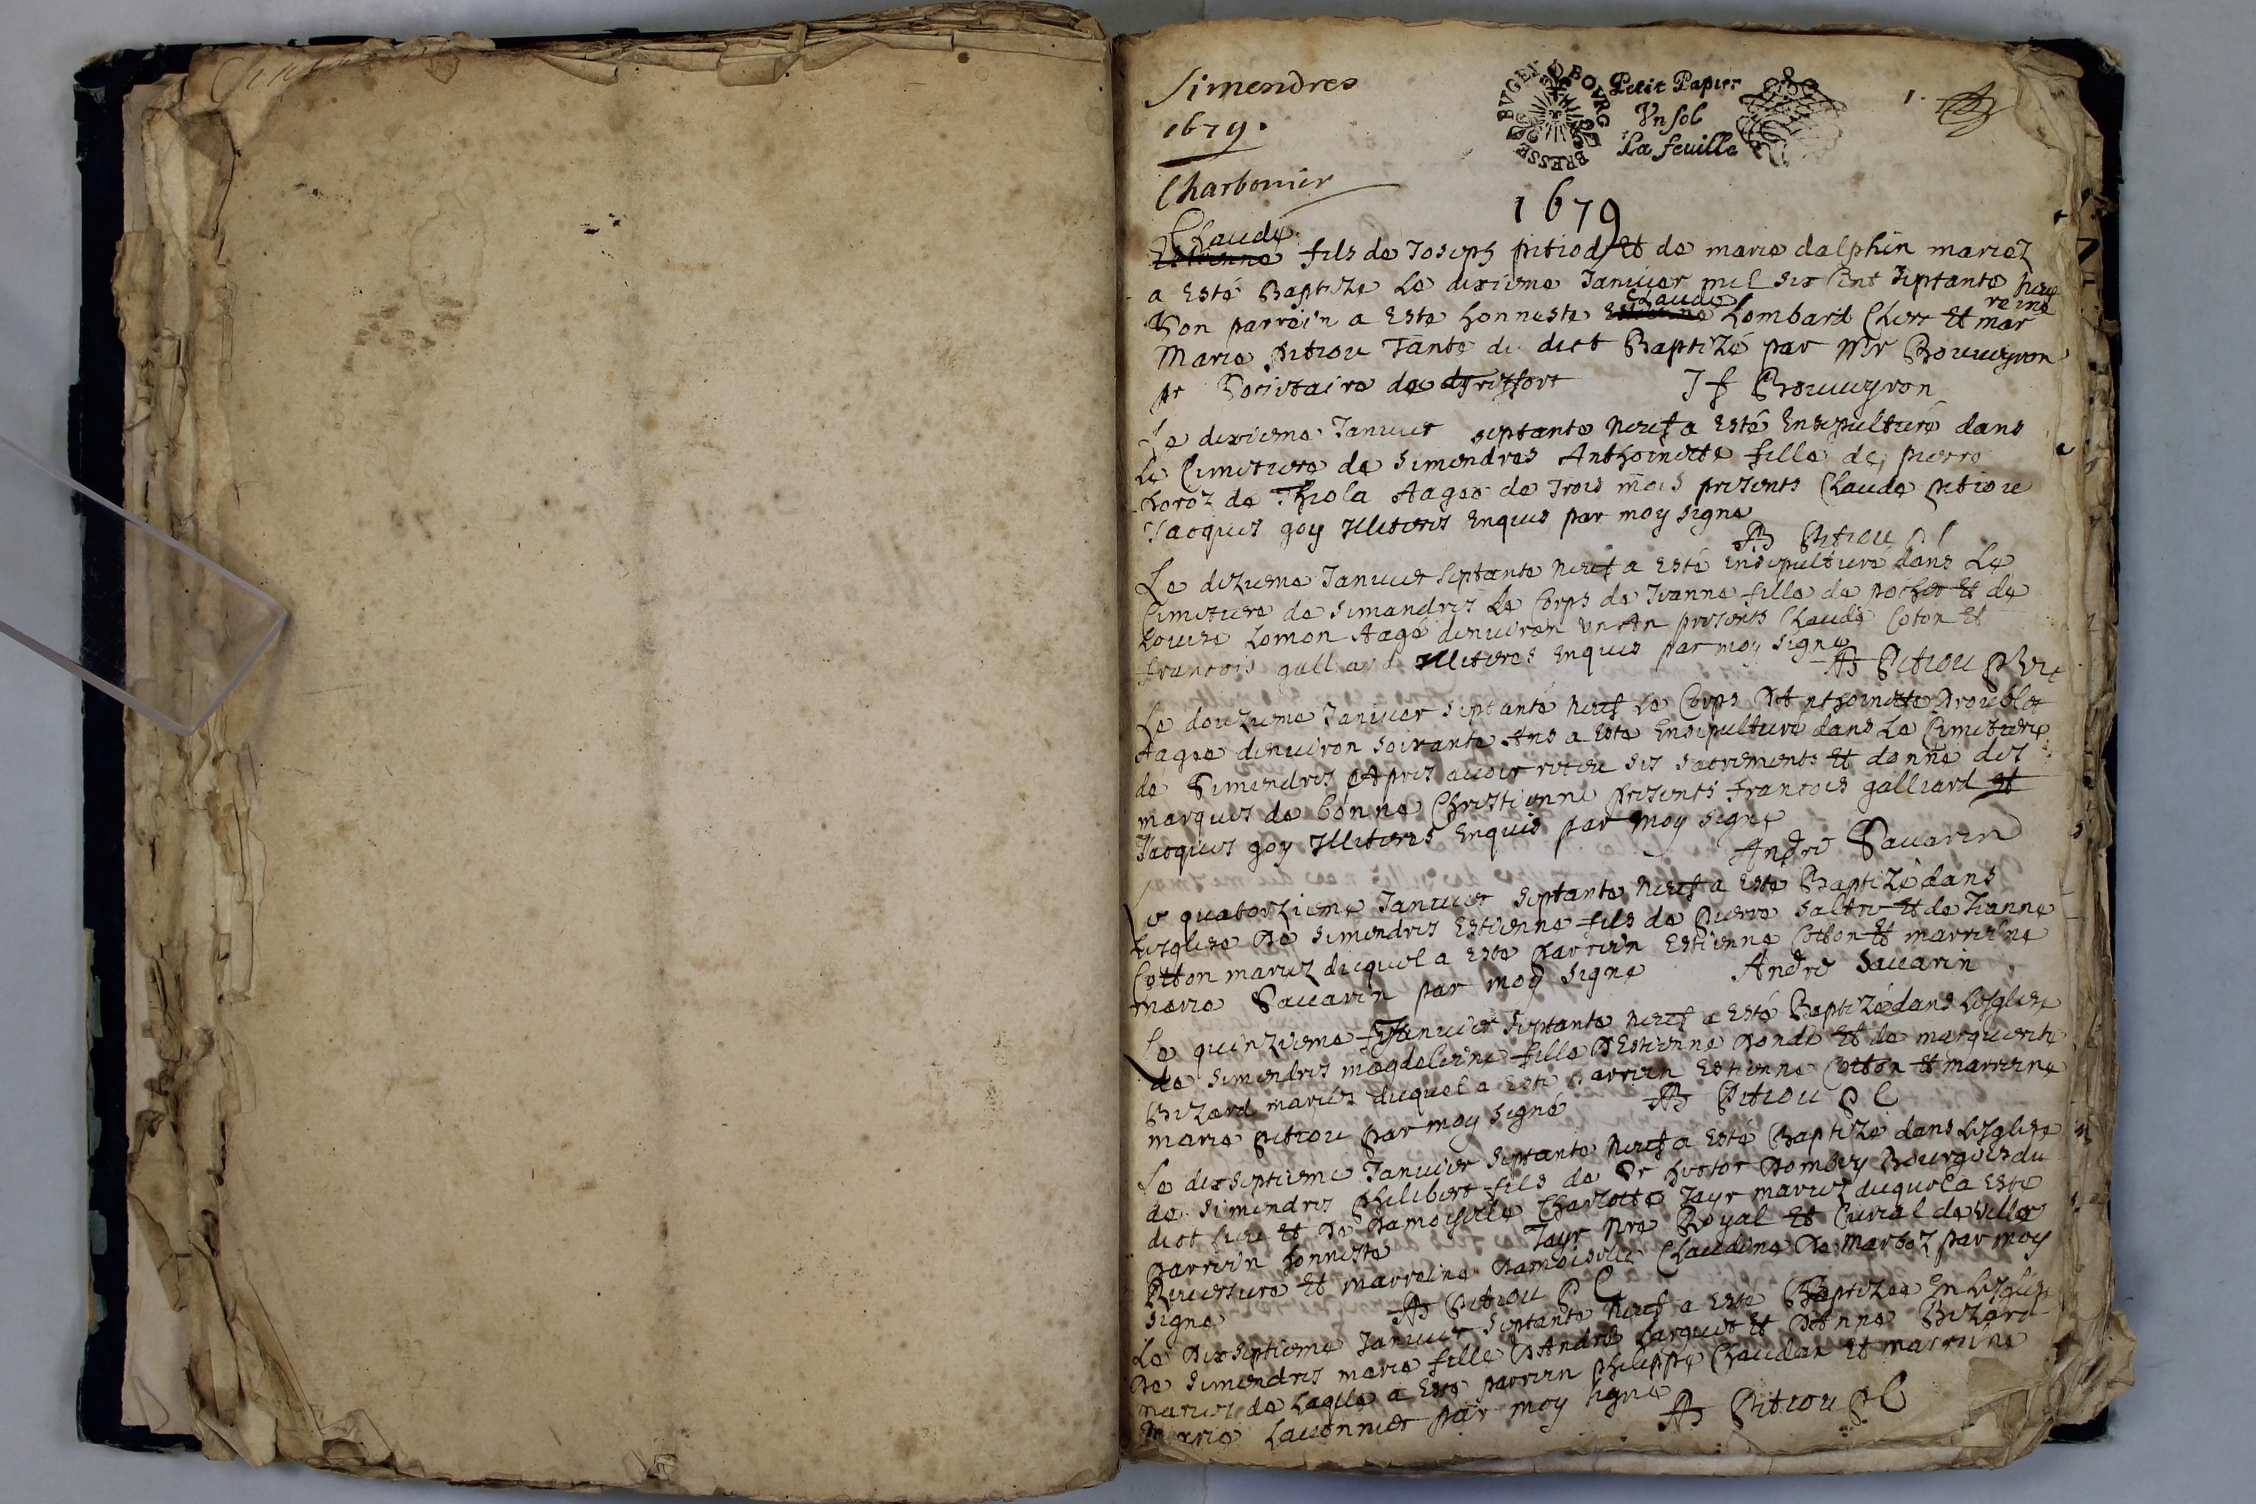 Simendres
1679.
Charbonier
BVGEY DE BOVRG BRESSE
Petit Papier
Vn sol
La feuille
1.
1679
Claude
Estienne fils de Joseph pitiod Et de marie dalphin mariez
a Esté Baptize Le dixieme Januier mil six Cent Septante neuf
Son parrein a Este honneste Estienne Claude Lombard Clerc Et mar
reine
Marie pitiou Tante du dict Baptizé par Mr Bouuyron
pr Societaire de
J f Bouuyron
Le dixieme Januier septante neuf a Esté Ensepulturé dans
Le Cimetiere de Simendres Anthoinette fille de pierre
de Thiola Aagee de Trois mois presents Claude pitiou
Jacques goy Illiteres Enquis par moy signe
Pitiou
Le dizieme Januier Septante neuf a Esté Ensepulturé dans Le
Cimetiere de Simandres Le Corps de Jeanne fille de Et de
Louize Lomon Aagé denuiron vn An presents Claude Coton Et
francois galliard Illiteres Enquis par moy signe
Pitiou
Le douzieme Januier septante neuf Le Corps d'Anthoinette
Aagee denuiron soixante Ans a Este Ensepulturé dans Le Cimetiere
de Simendres Apres auoir receu ses sacrements Et donné des
marques de bonne Christienne presents francois galliard Et
Jacques goy Illiteres Enquis par moy signe
André Sauarin
Le quatorzieme Januier septante neuf a Este Baptizé dans
Lesglize de Simendres Estienne fils de Pierre Et de Jeanne
Cotton mariez duquel a Este Parrein Estienne Cotton Et marreine
marie Sauarin par moy signe
André Sauarin
Le quinzieme Januier Septante neuf a Esté Baptizé dans Lesglize
de Simendres magdeleine fille d'Estienne Et de marguerite
Bizard mariés duquel a Esté parrein Estienne Cotton Et marreine
marie pitiou par moy signé
Pitiou
Le dixseptieme Januier Septante neuf a Esté Baptizé dans Lesglize
de Simendres Philibert fils de Sr hector Dombey Bourgeois du
dict Lieu Et de Damoiselle Charlotte Jayr mariez duquel a Este
Parrein honneste Jayr nre Royal Et Curial de Ville
Reuersure Et marreine Damoiselle Claudine de Marboz par moy
signe
Pitiou
Le dixseptieme Januier Septante neuf a Este Baptizee En Lesglize
De Simendres marie fille d'André Et d'Anne Bizard
mariez de Laqlle a Este parrein philippe Chaudar Et marreine
Marie Lauonnier par moy signe
Pitiou